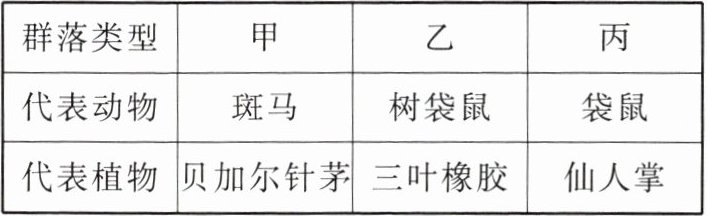 群落类型 甲 乙 丙
代表动物 斑马 树袋鼠 袋鼠
代表植物 贝加尔针茅 三叶橡胶 仙人掌